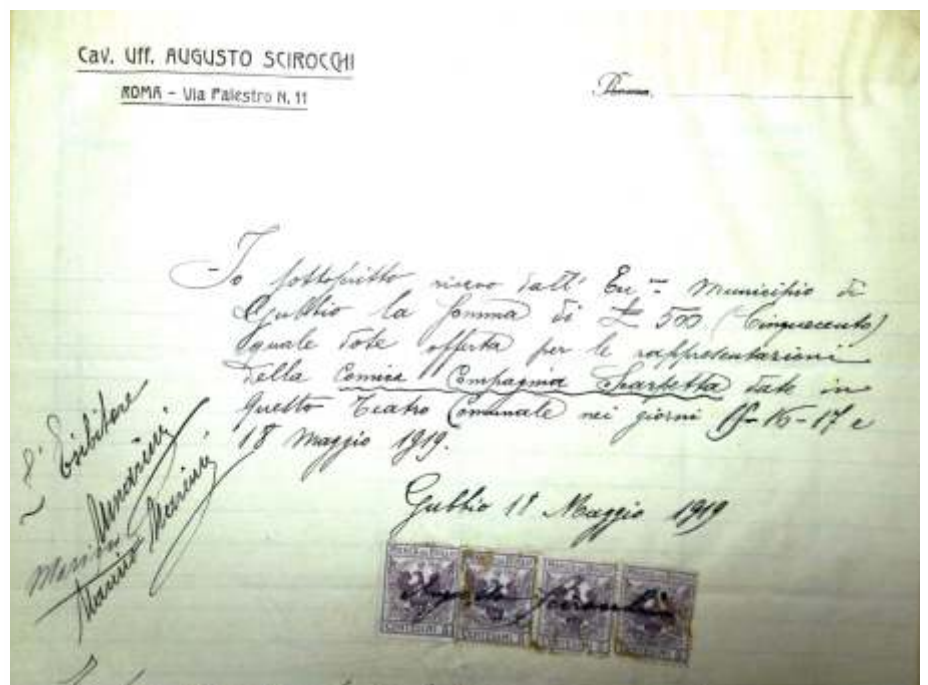 Cav. Uff. AUGUSTO SCIROCCHI
ROMA – Via Palestro N. 11
Roma,
Io sottoscritto ricevo dall' Municipio di
Gubbio la somma di £ 500 (Cinquecento)
quale dote offerta per le rappresentazioni
della Comica Compagnia Scarpetta date in
questo Teatro Comunale nei giorni 15-16-17 e
18 Maggio 1919.
Gubbio 18 Maggio 1919
L' Esibitore
Marino Marini
MARCA DA BOLLO
Augusto Scirocchi
CENTESIMI